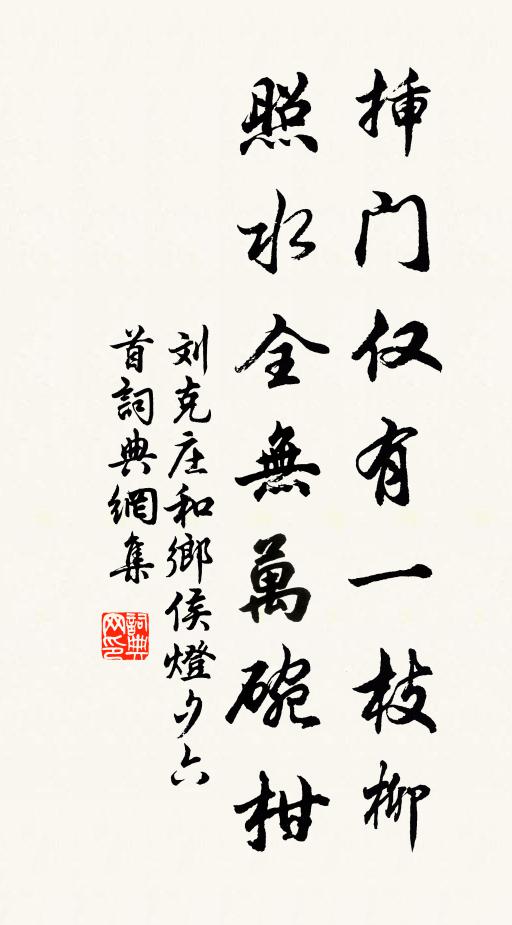 挿門仅有一枝柳
照水全無萬碗柑
刘克庄和鄉侯燈夕六
首詞典網集
詞典网印